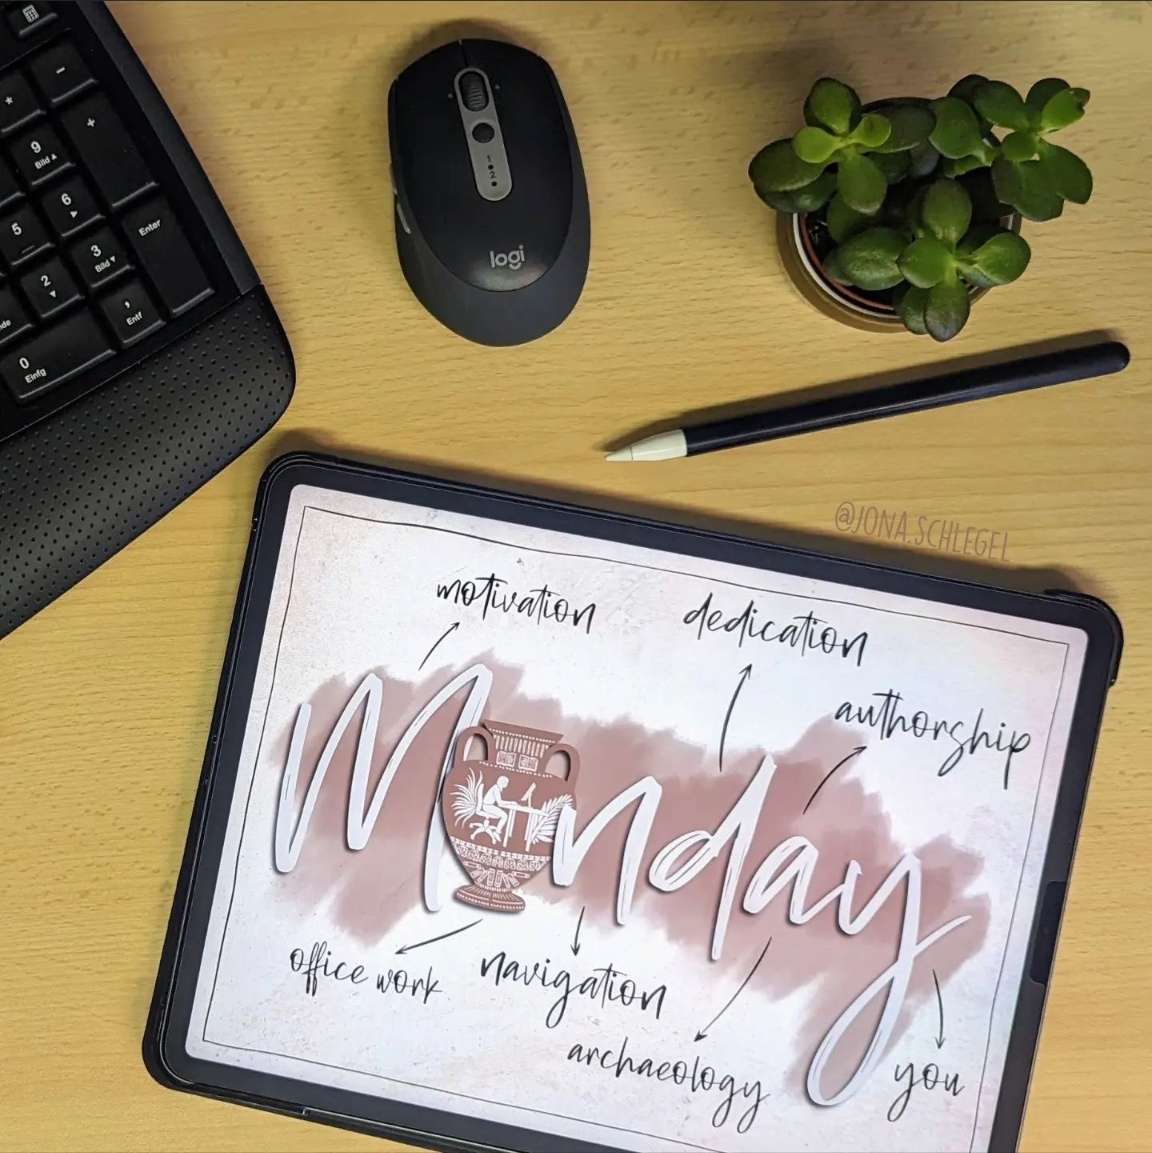 -
*
+
9
Bild ▲
6
5
Enter
3
Bild ▼
2
,
Entf
0
Einfg
1
2
logi
@JONA.SCHLEGEL
motivation
dedication
authorship
Monday
office work
navigation
archaeology
you